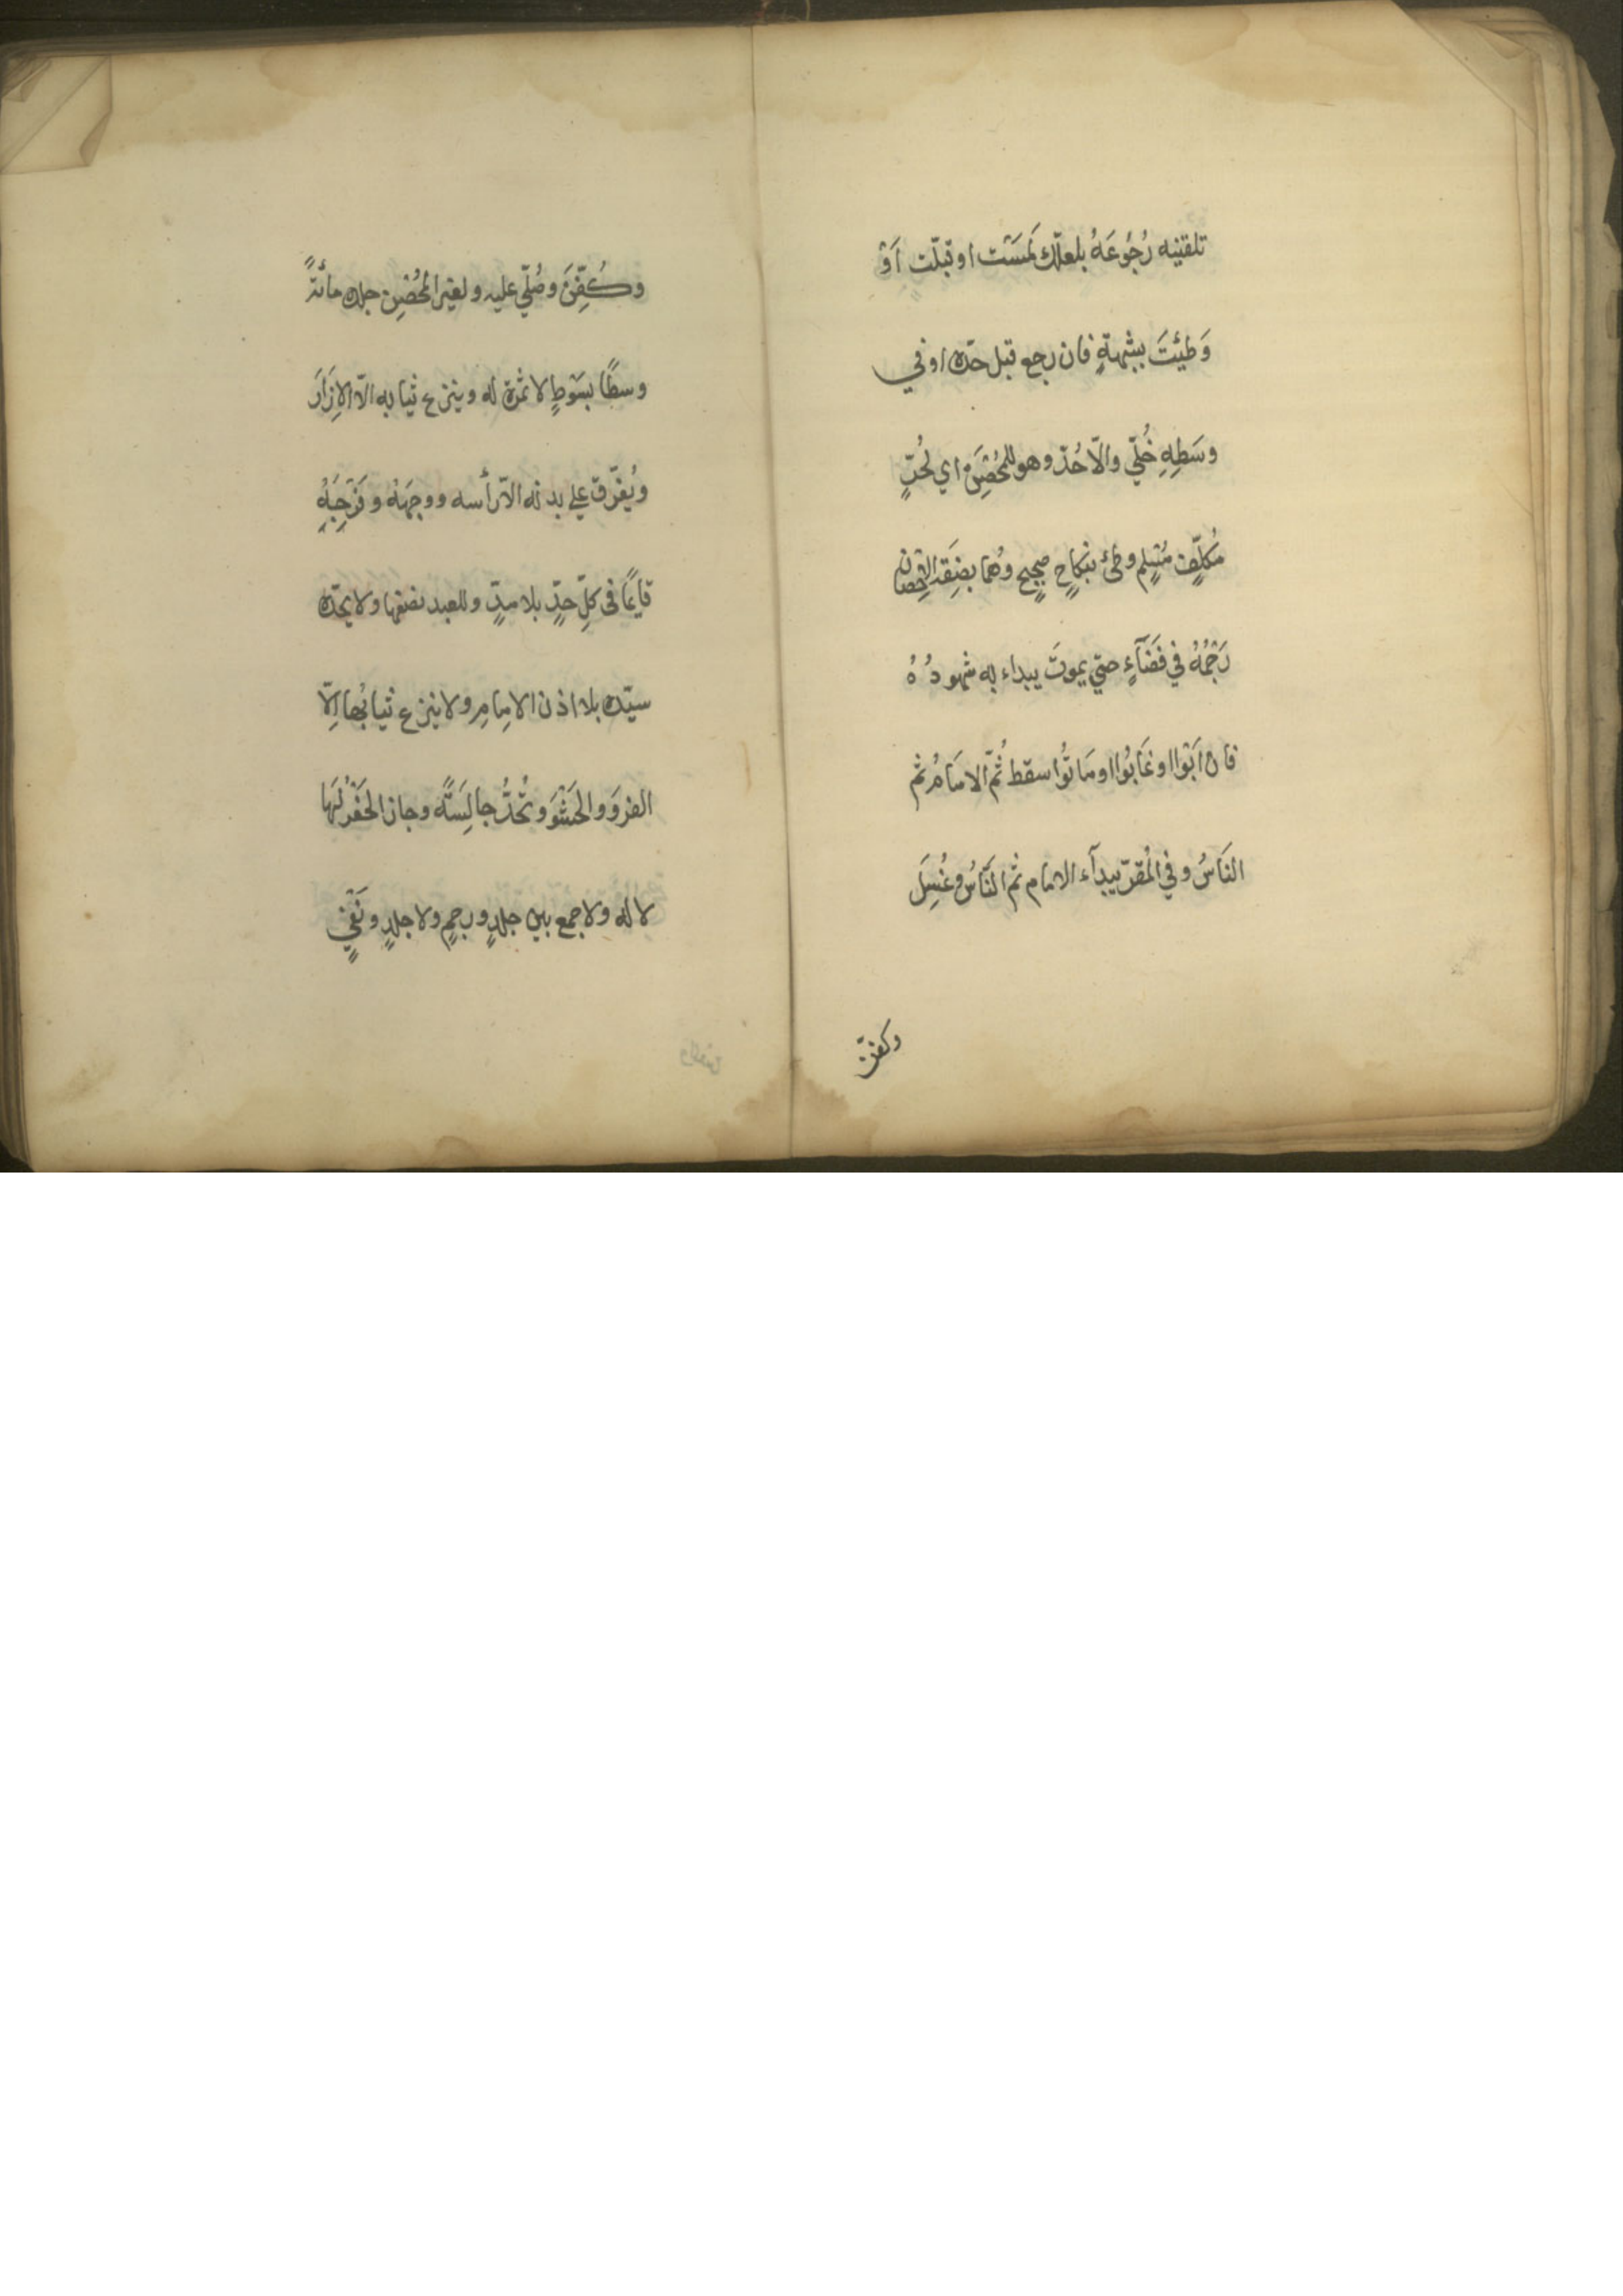 تلقينه رُجُوعَهُ بلعلّك لمَسْت او قبّلت اَوْ
وَطِيئتَ بِشُبهةٍ فان رجع قبل حدّه او في
وسَطِهِ خُلّي والّا حُدّ وهو للمُحْصَنِ اي لحُرٍّ
مُكلّفٍ مُسْلِمٍ وطئ بنكاحٍ صحيحٍ وهُما بصفة الاِحْصَانِ
رَجْمُهُ في فَضَآءٍ حتي يموتَ يبداء به شهودُهُ
فان اَبَوْا او غَابُوا او مَاتُوا سقط ثُمّ الامَامُ ثم
النَاسُ وفي المُقرّ يبدآء الامام ثم النَّاسُ وغُسِلَ
وكفن
وكُفِّنَ وصُلّي عليه ولغير المُحْصَنِ جلده مائةً
وسطًا بسَوْطٍ لا ثمرة له وينزع ثيابه الّا الاِزَارَ
ويُفرّق علي بدنه الّا رأسه ووجهَهُ وفَرْجَهُ
قايمًا في كلِّ حدٍّ بلا مدٍّ وللعبد نصفها ولا يحدّه
سيّده بلا اذن الامامِ ولا ينزع ثيابُها اِلّا
الفروَ والحَشْوَ وتُحَدُّ جالِسَةً وجاز الحَفْرُ لهَا
لا له ولا جمع بين جلدٍ ورجمٍ ولا جلدٍ ونَفْيٍ